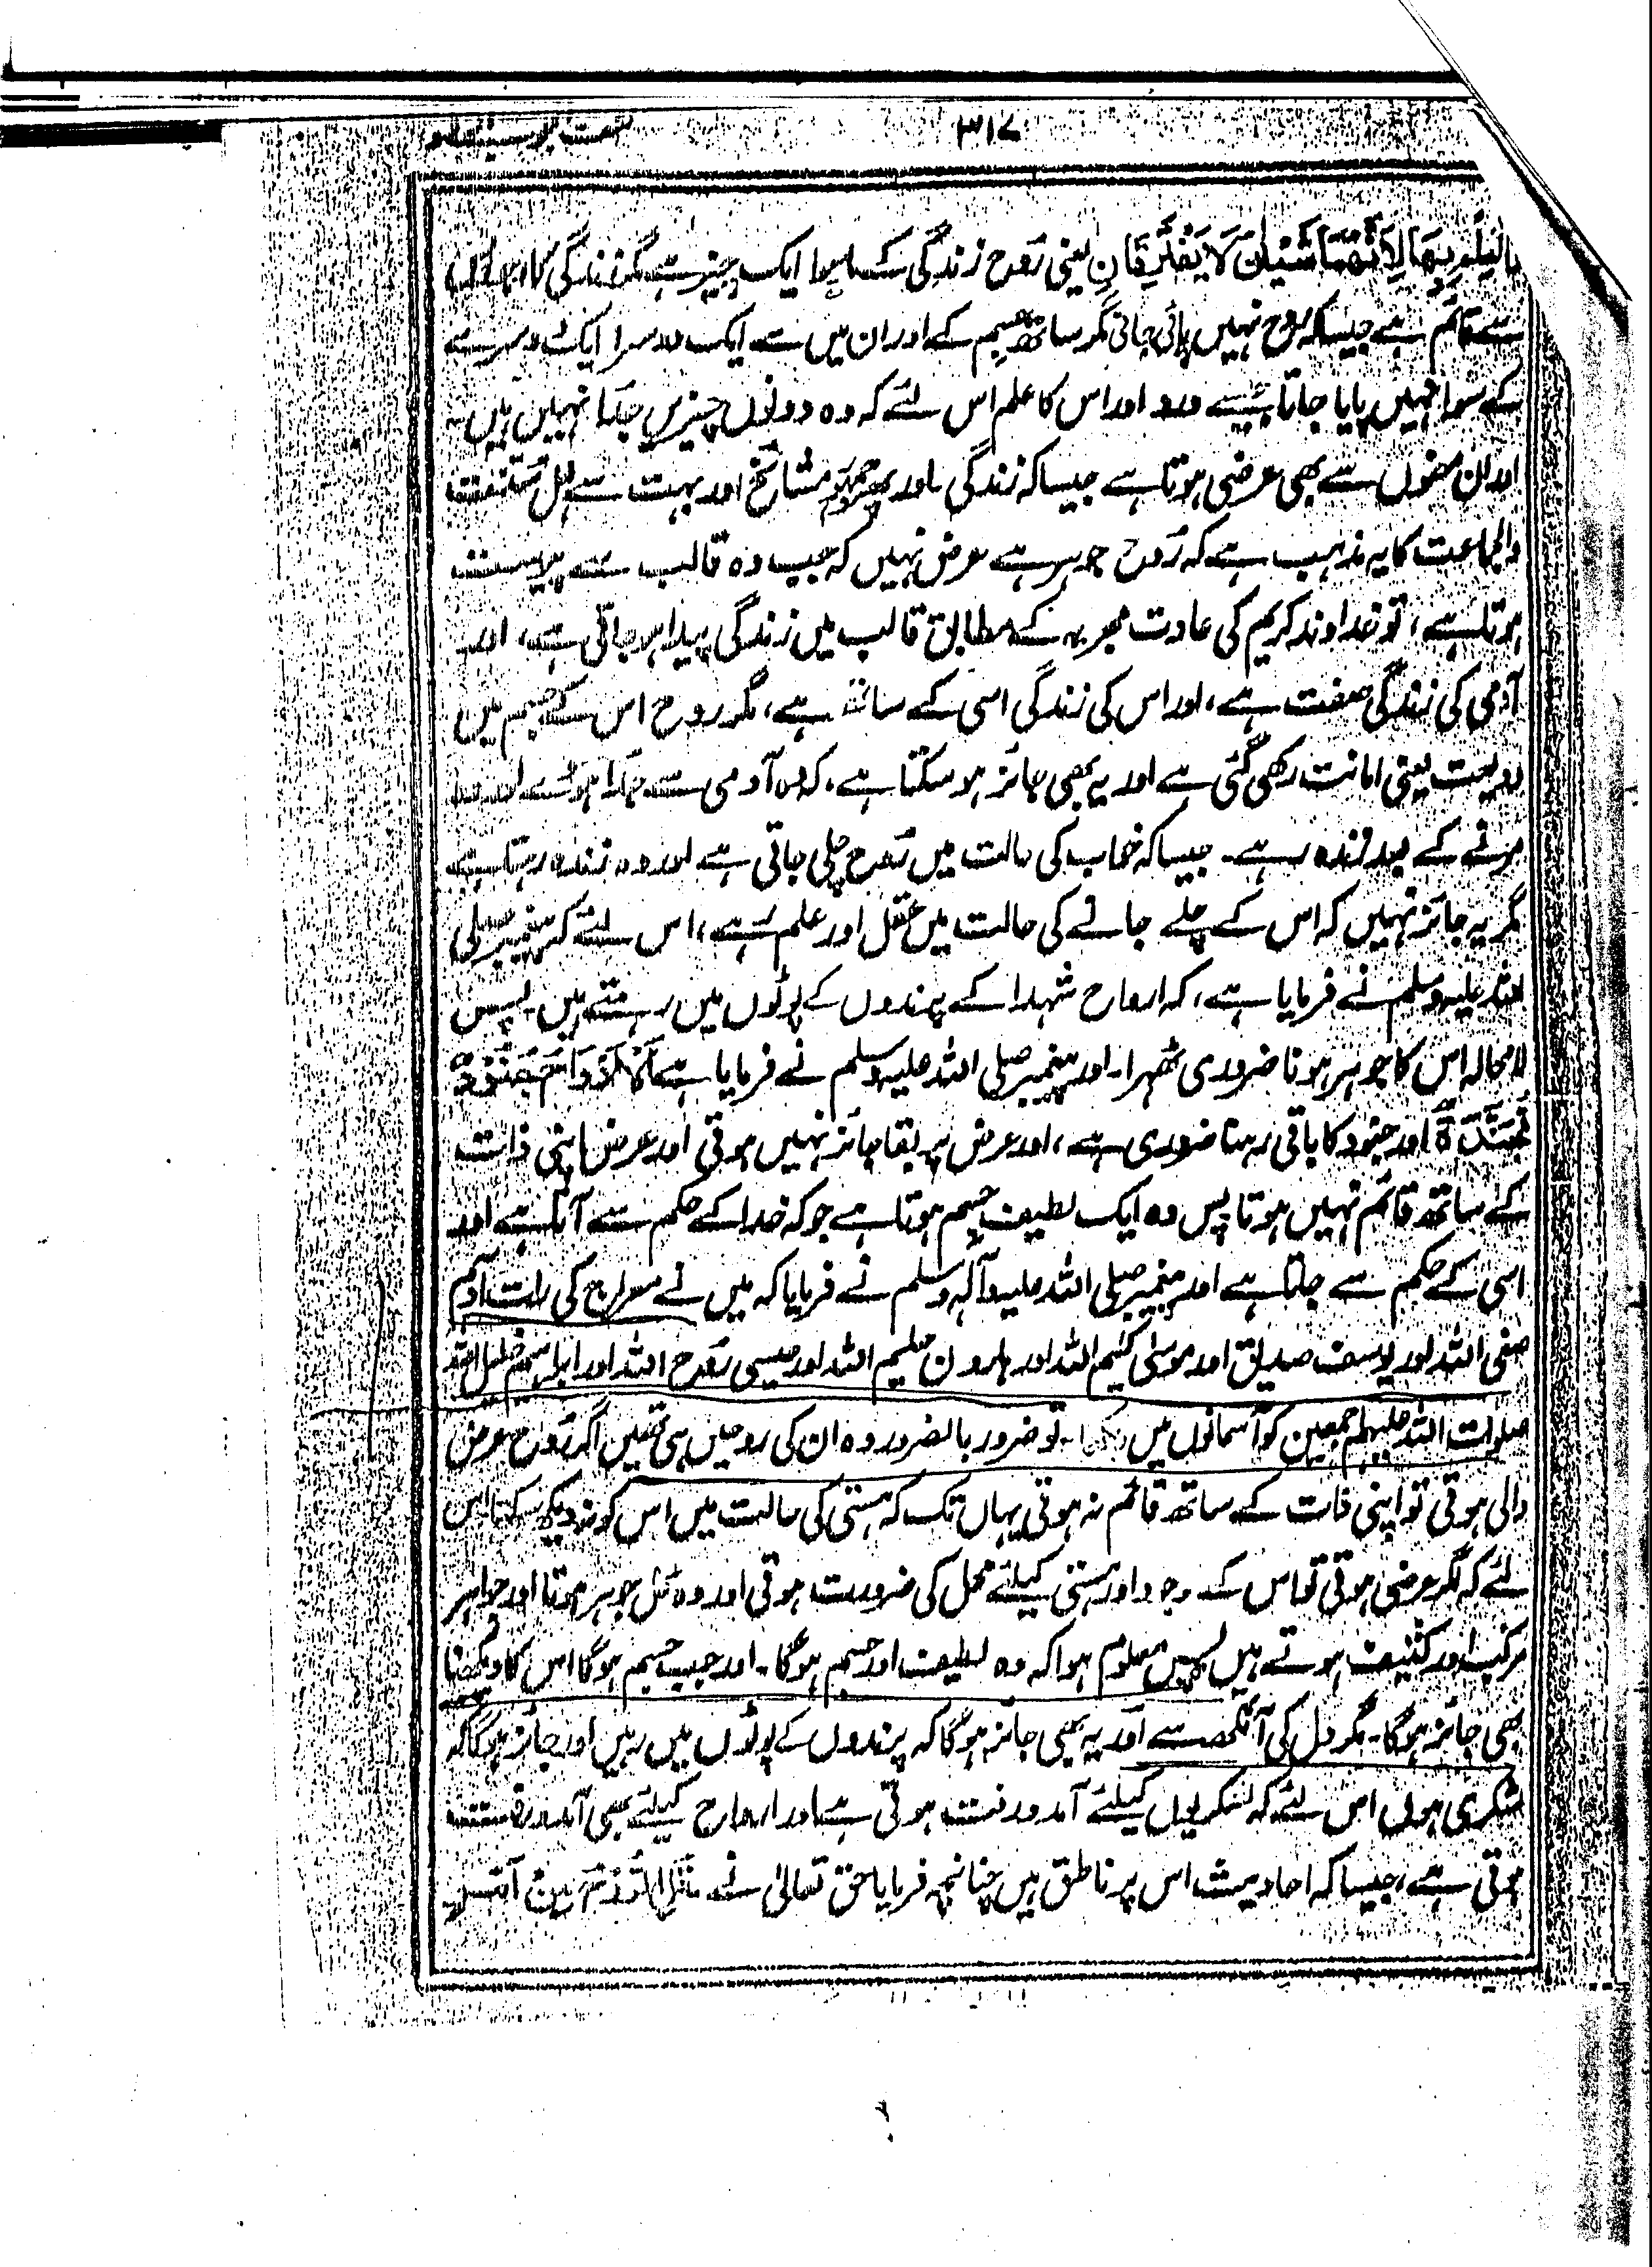 ٣١٧
لِاَنَّهُمَا شَيْئَانِ لَا يَفْتَرِقَانِ یعنی رُوح زندگی کے ماسوا ایک چیز ہے مگر زندگی کا
سے قائم ہے جیسا کہ روح نہیں پائی جاتی مگر ساتھ جسم کے اور ان میں سے ایک دوسرا ایک دوسرے
کے سوا نہیں پایا جاتا جیسے درد اور اس کا علم اس لئے کہ وہ دونوں چیزیں جُدا نہیں ہیں۔
اور ان معنوں سے بھی عرضی ہوتا ہے جیسا کہ زندگی اور جمہور مشائخ اور بہت سے اہل سنّت
والجماعت کا یہ مذہب ہے کہ رُوح جوہر ہے عرض نہیں کہ جب وہ قالب سے پیوست
ہوتا ہے، تو خداوند کریم کی عادت مجریہ کے مطابق قالب میں زندگی پیدا ہو جاتی ہے، اور
آدمی کی زندگی صفت ہے، اور اس کی زندگی اسی کے ساتھ ہے، مگر روح اس کے جسم میں
ودیعت یعنی امانت رکھی گئی ہے اور یہ بھی جائز ہو سکتا ہے، کہ وہ آدمی سے جُدا ہو جائے اور
مرنے کے بعد زندہ رہے۔ جیسا کہ خواب کی حالت میں رُوح چلی جاتی ہے اور وہ زندہ رہتا ہے
مگر یہ جائز نہیں کہ اس کے چلے جانے کی حالت میں عقل اور علم رہے، اس لئے کہ پیغمبر صلی
اللہ علیہ وسلم نے فرمایا ہے، کہ ارواح شہدا کے پرندوں کے پوٹوں میں رہتے ہیں۔ پس
لا محالہ اس کا جوہر ہونا ضروری ٹھہرا۔ اور پیغمبر صلی اللہ علیہ وسلم نے فرمایا ہے اَلْاَرْوَاحُ جُنُوْدٌ
مُّجَنَّدَةٌ اور جنود کا باقی رہنا ضروری ہے، اور عرض پر بقا جائز نہیں ہوتی اور عرض اپنی ذات
کے ساتھ قائم نہیں ہوتا پس وہ ایک لطیف جسم ہوتا ہے جو کہ خدا کے حکم سے آتا ہے اور
اسی کے حکم سے جاتا ہے اور پیغمبر صلی اللہ علیہ وآلہ وسلم نے فرمایا کہ میں نے معراج کی رات آدم
صفی اللہ اور یوسف صدیق اور موسیٰ کلیم اللہ اور ہارون حلیم اللہ اور عیسیٰ رُوح اللہ اور ابراہیم خلیل اللہ
صلوات اللہ علیہم اجمعین کو آسمانوں میں دیکھا۔ تو ضرور بالضرور وہ ان کی روحیں ہی تھیں اگر رُوح عرض
والی ہوتی تو اپنی ذات کے ساتھ قائم نہ ہوتی یہاں تک کہ ہستی کی حالت میں اس کو نہ دیکھ سکتا اس
لئے کہ اگر عرضی ہوتی تو اس کے وجود اور ہستی کیلئے محل کی ضرورت ہوتی اور وہ محل جوہر ہوتا اور جواہر
مرکب اور کثیف ہوتے ہیں پس ہمیں معلوم ہوا کہ وہ لطیف اور جسیم ہوگا۔ اور جب جسیم ہوگا اس کا دیکھنا
بھی جائز ہوگا۔ مگر دل کی آنکھ سے اور یہ بھی جائز ہوگا کہ پرندوں کے پوٹوں میں رہیں اور جائز ہوگا کہ
لشکری ہوں اس لئے کہ لشکریوں کیلئے آمد و رفت ہوتی ہے اور ارواح کیلئے بھی آمد و رفت
ہوتی ہے، جیسا کہ احادیث اس پر ناطق ہیں چنانچہ فرمایا حق تعالیٰ نے